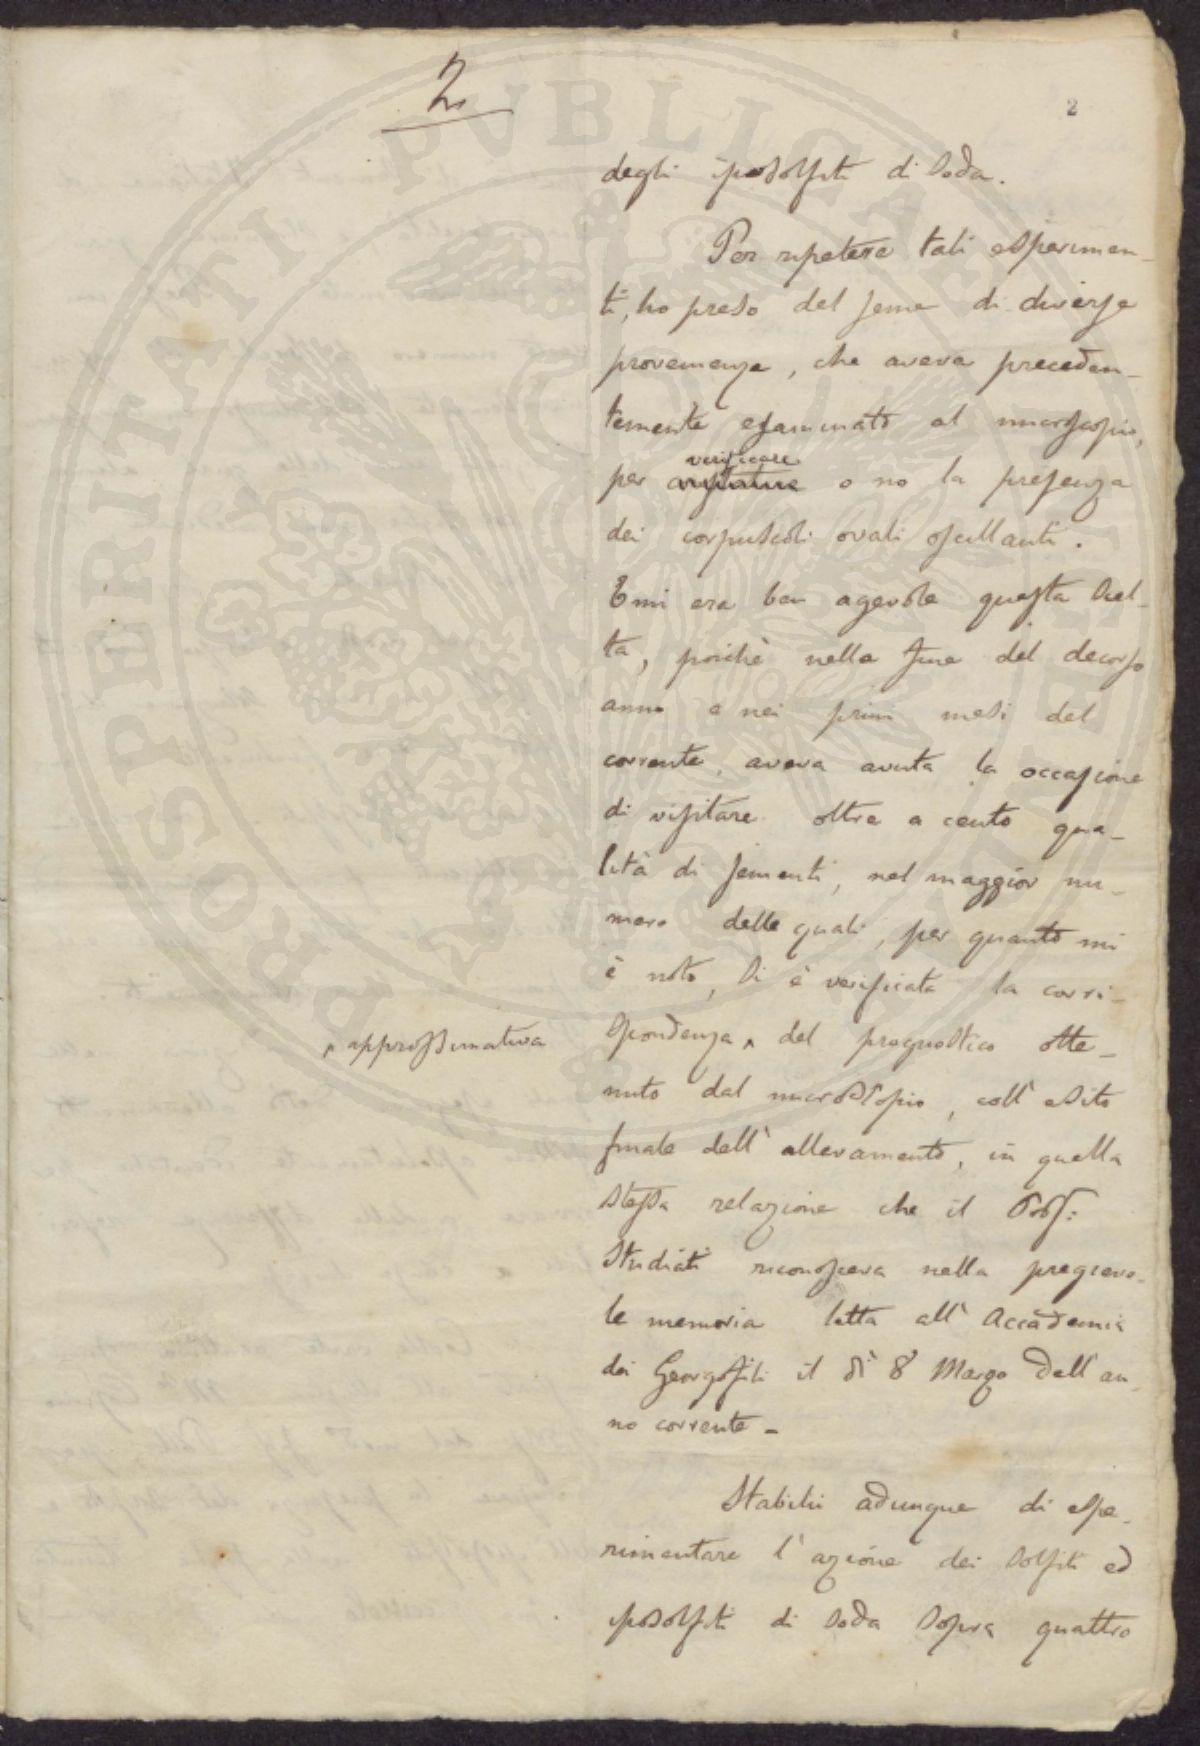 2.
2
degli iposolfiti di Soda.
Per ripetere tali esperimen-
ti, ho preso del seme di diverse
provenienze, che aveva preceden-
temente esaminato al microscopio,
verificare
per o no la presenza
dei corpuscoli ovali oscillanti.
E mi era ben agevole questa Scel-
ta, poichè nella fine del decorso
anno e nei primi mesi del
corrente, aveva avuta la occasione
di visitare oltre a cento qua-
lità di sementi, nel maggior nu-
mero delle quali, per quanto mi
è noto, Si è verificata la corri-
spondenza, del prognostico otte-
approssimativa
nuto dal microscopio, coll' esito
finale dell' allevamento, in quella
stessa relazione che il Prof:
Studiati riconosceva nella pregievo-
le memoria letta all' Accademia
dei Georgofili il dì 8 Marzo dell' an-
no corrente -
Stabilii adunque di espe-
rimentare l' azione dei Solfiti ed
iposolfiti di Soda Sopra quattro
PROSPERITATI PVBLICAE AVGENDAE